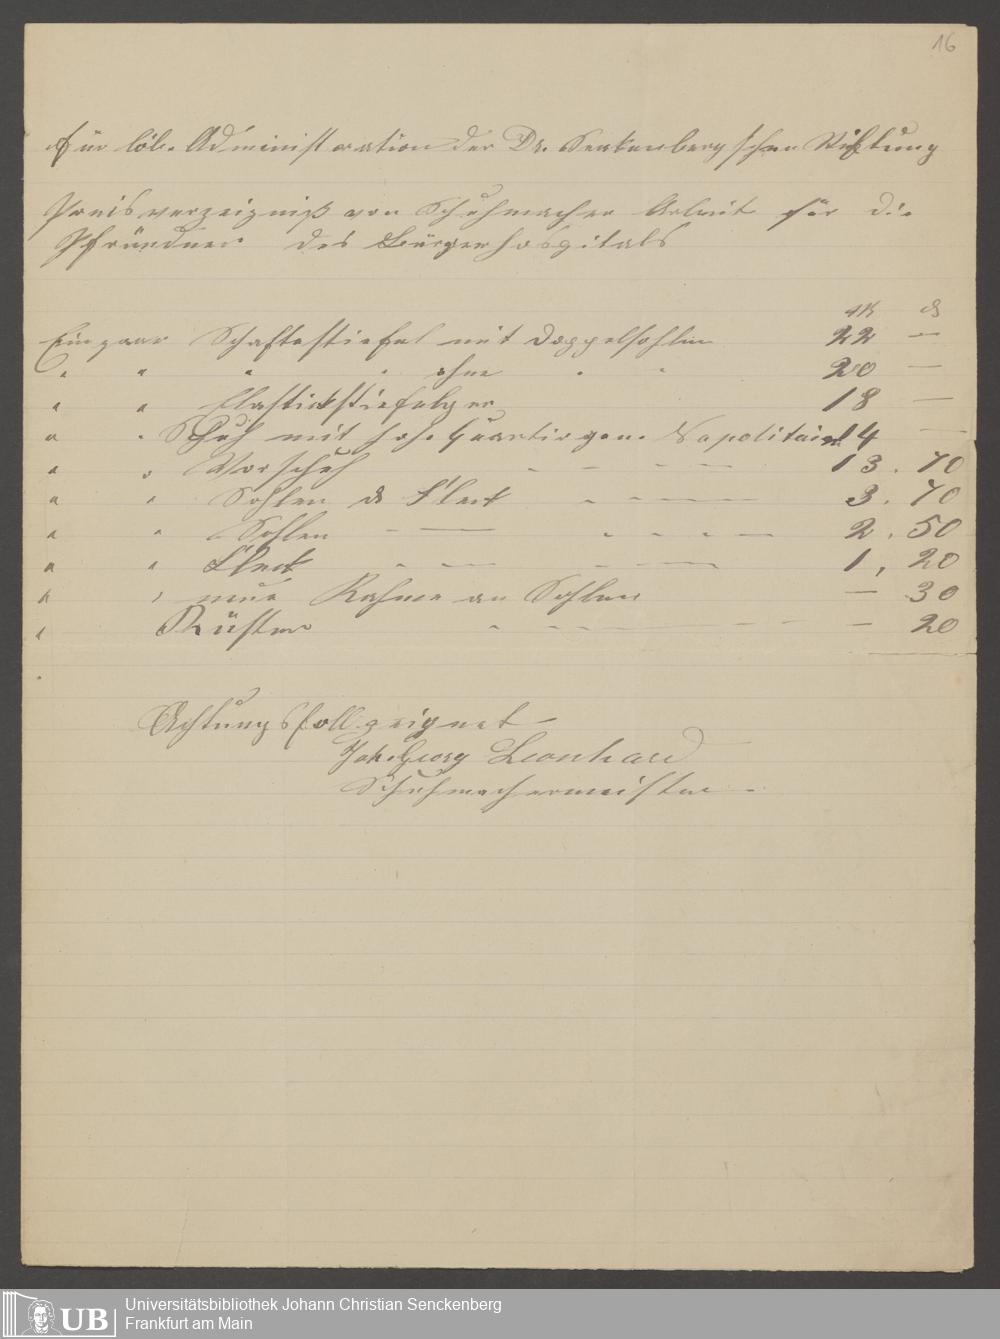 16
Für löb. Administration der Dr. Senkenbergschen Stiftung
Preisverzeigniß von Schuhmacher Arbeit für die
Pfründner des Bürgerhospitals
M ₰
Ein paar Schaftestiefel mit Doppelsohlen 22 —
" " " " ohne " " 20 —
" " Elastickstiefel 18 —
" " Schuh mit hoh. Quartir gen. Napolitain 14 —
" " Vorschuh 13. 70
" " Sohlen & Fleck 3. 70
" " Sohlen 2. 50
" " Fleck 1, 20
" " neue Rahme an Sohlen — 30
" Rüster — 20
Achtungsfoll zeignet
Joh. Georg Leonhard
Schuhmachermeister
UB Universitätsbibliothek Johann Christian Senckenberg
Frankfurt am Main